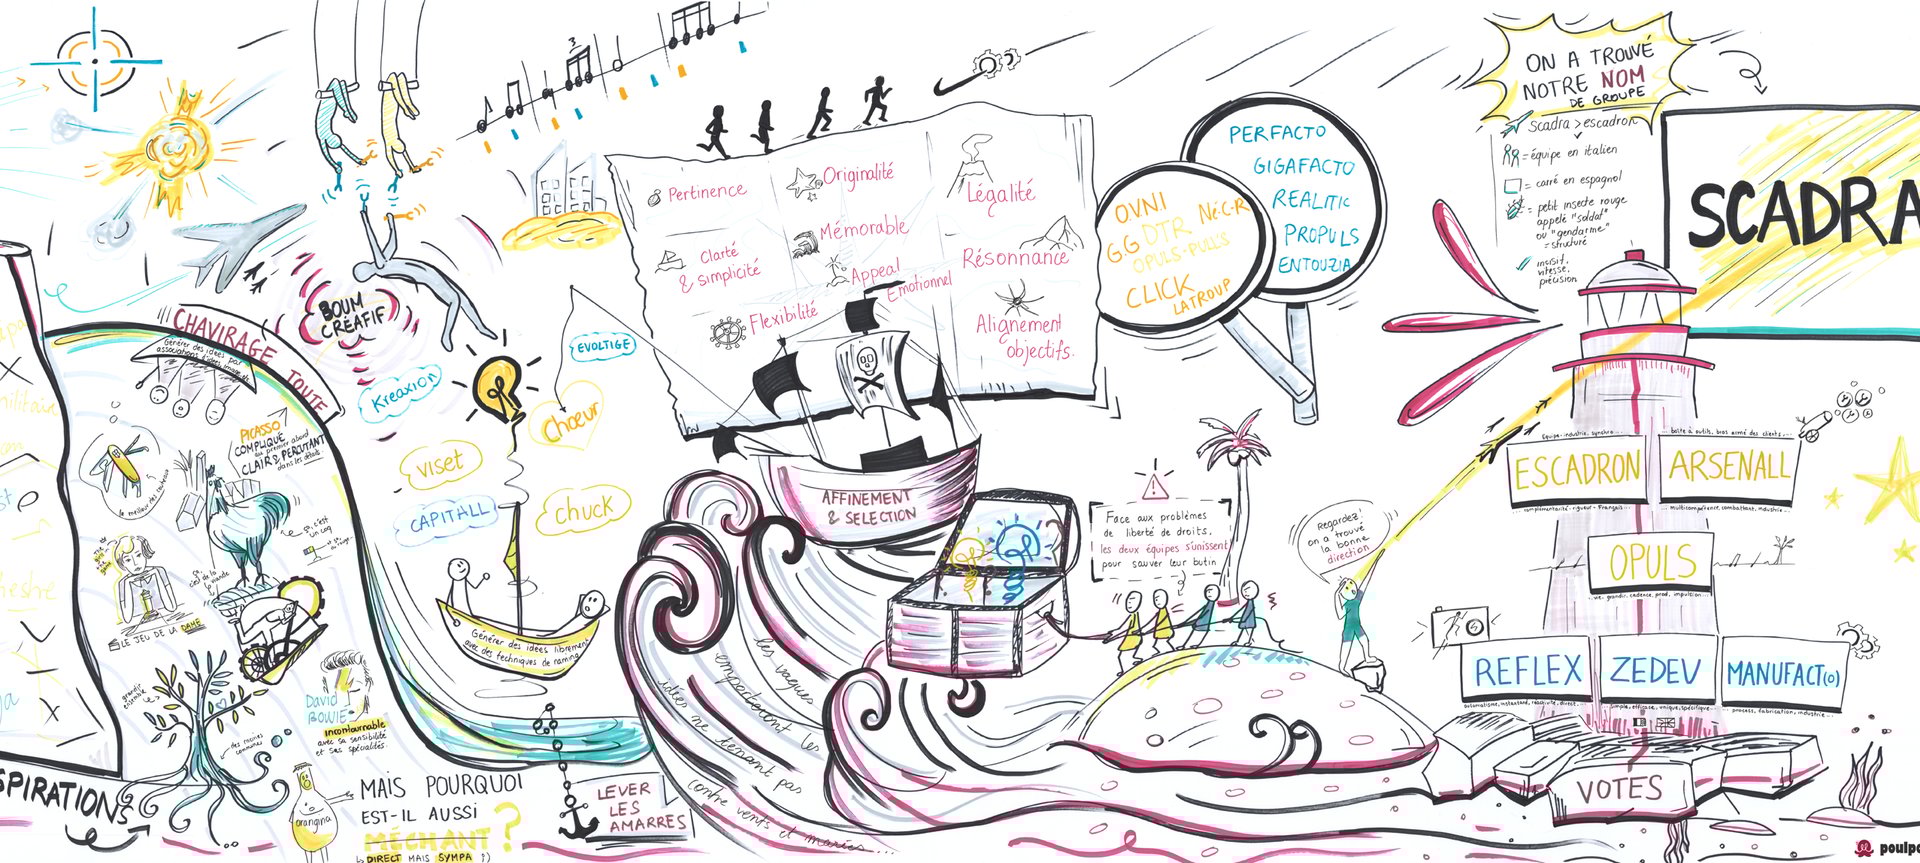 CHAVIRAGE
TOUTE
Générer des idées par
associations d'idées
BOUM
CRÉATIF
Kreaxion
EVOLTIGE
Chœur
viset
CAPITALL
chuck
PICASSO
COMPLIQUÉ
au premier abord
CLAIR & PERCUTANT
dans les détails.
le meilleur des couteaux
ça, c'est
un coq
ça,
c'est de la
viande
LE JEU DE LA DAME
grandir
ensemble
des racines
communes
David
BOWIE
incontournable
avec sa sensibilité
et ses spécialités.
SPIRATIONS
orangina
MAIS POURQUOI
EST-IL AUSSI
MÉCHANT ?
DIRECT MAIS SYMPA :)
Générer des idées librement
avec des techniques de naming
LEVER
LES
AMARRES
Pertinence
Originalité
Légalité
Clarté
& simplicité
Mémorable
Résonnance
Flexibilité
Appeal
Emotionnel
Alignement
objectifs.
AFFINEMENT
& SELECTION
les vagues
empacteront les
idées ne tenant pas
contre vents et marées...
OVNI
Né.C.R
G.G DTR
OPULS-PULL'S
CLICK
LATROUP
PERFACTO
GIGAFACTO
REALITIC
PROPULS
ENTOUZIA
Face aux problèmes
de liberté de droits,
les deux équipes s'unissent
pour sauver leur butin
Regardez!
on a trouvé
la bonne
direction
ON A TROUVÉ
NOTRE NOM
DE GROUPE
Scadra > escadron
= équipe en italien
= carré en espagnol
= petit insecte rouge
appelé "soldat"
ou "gendarme"
= structuré
incisif,
vitesse,
précision
SCADRA
Equipe-industrie, synchro...
boîte à outils, bras armé des clients...
ESCADRON
ARSENALL
complémentarité-rigueur-Français...
multicompétence, combattant, industrie...
OPULS
...vie, grandir, cadence, prod, impulsion...
REFLEX
ZEDEV
MANUFACT(O)
automatisme, instantané, réactivité, direct...
simple, efficace, unique, spécifique...
process, fabrication, industrie...
VOTES
poulp